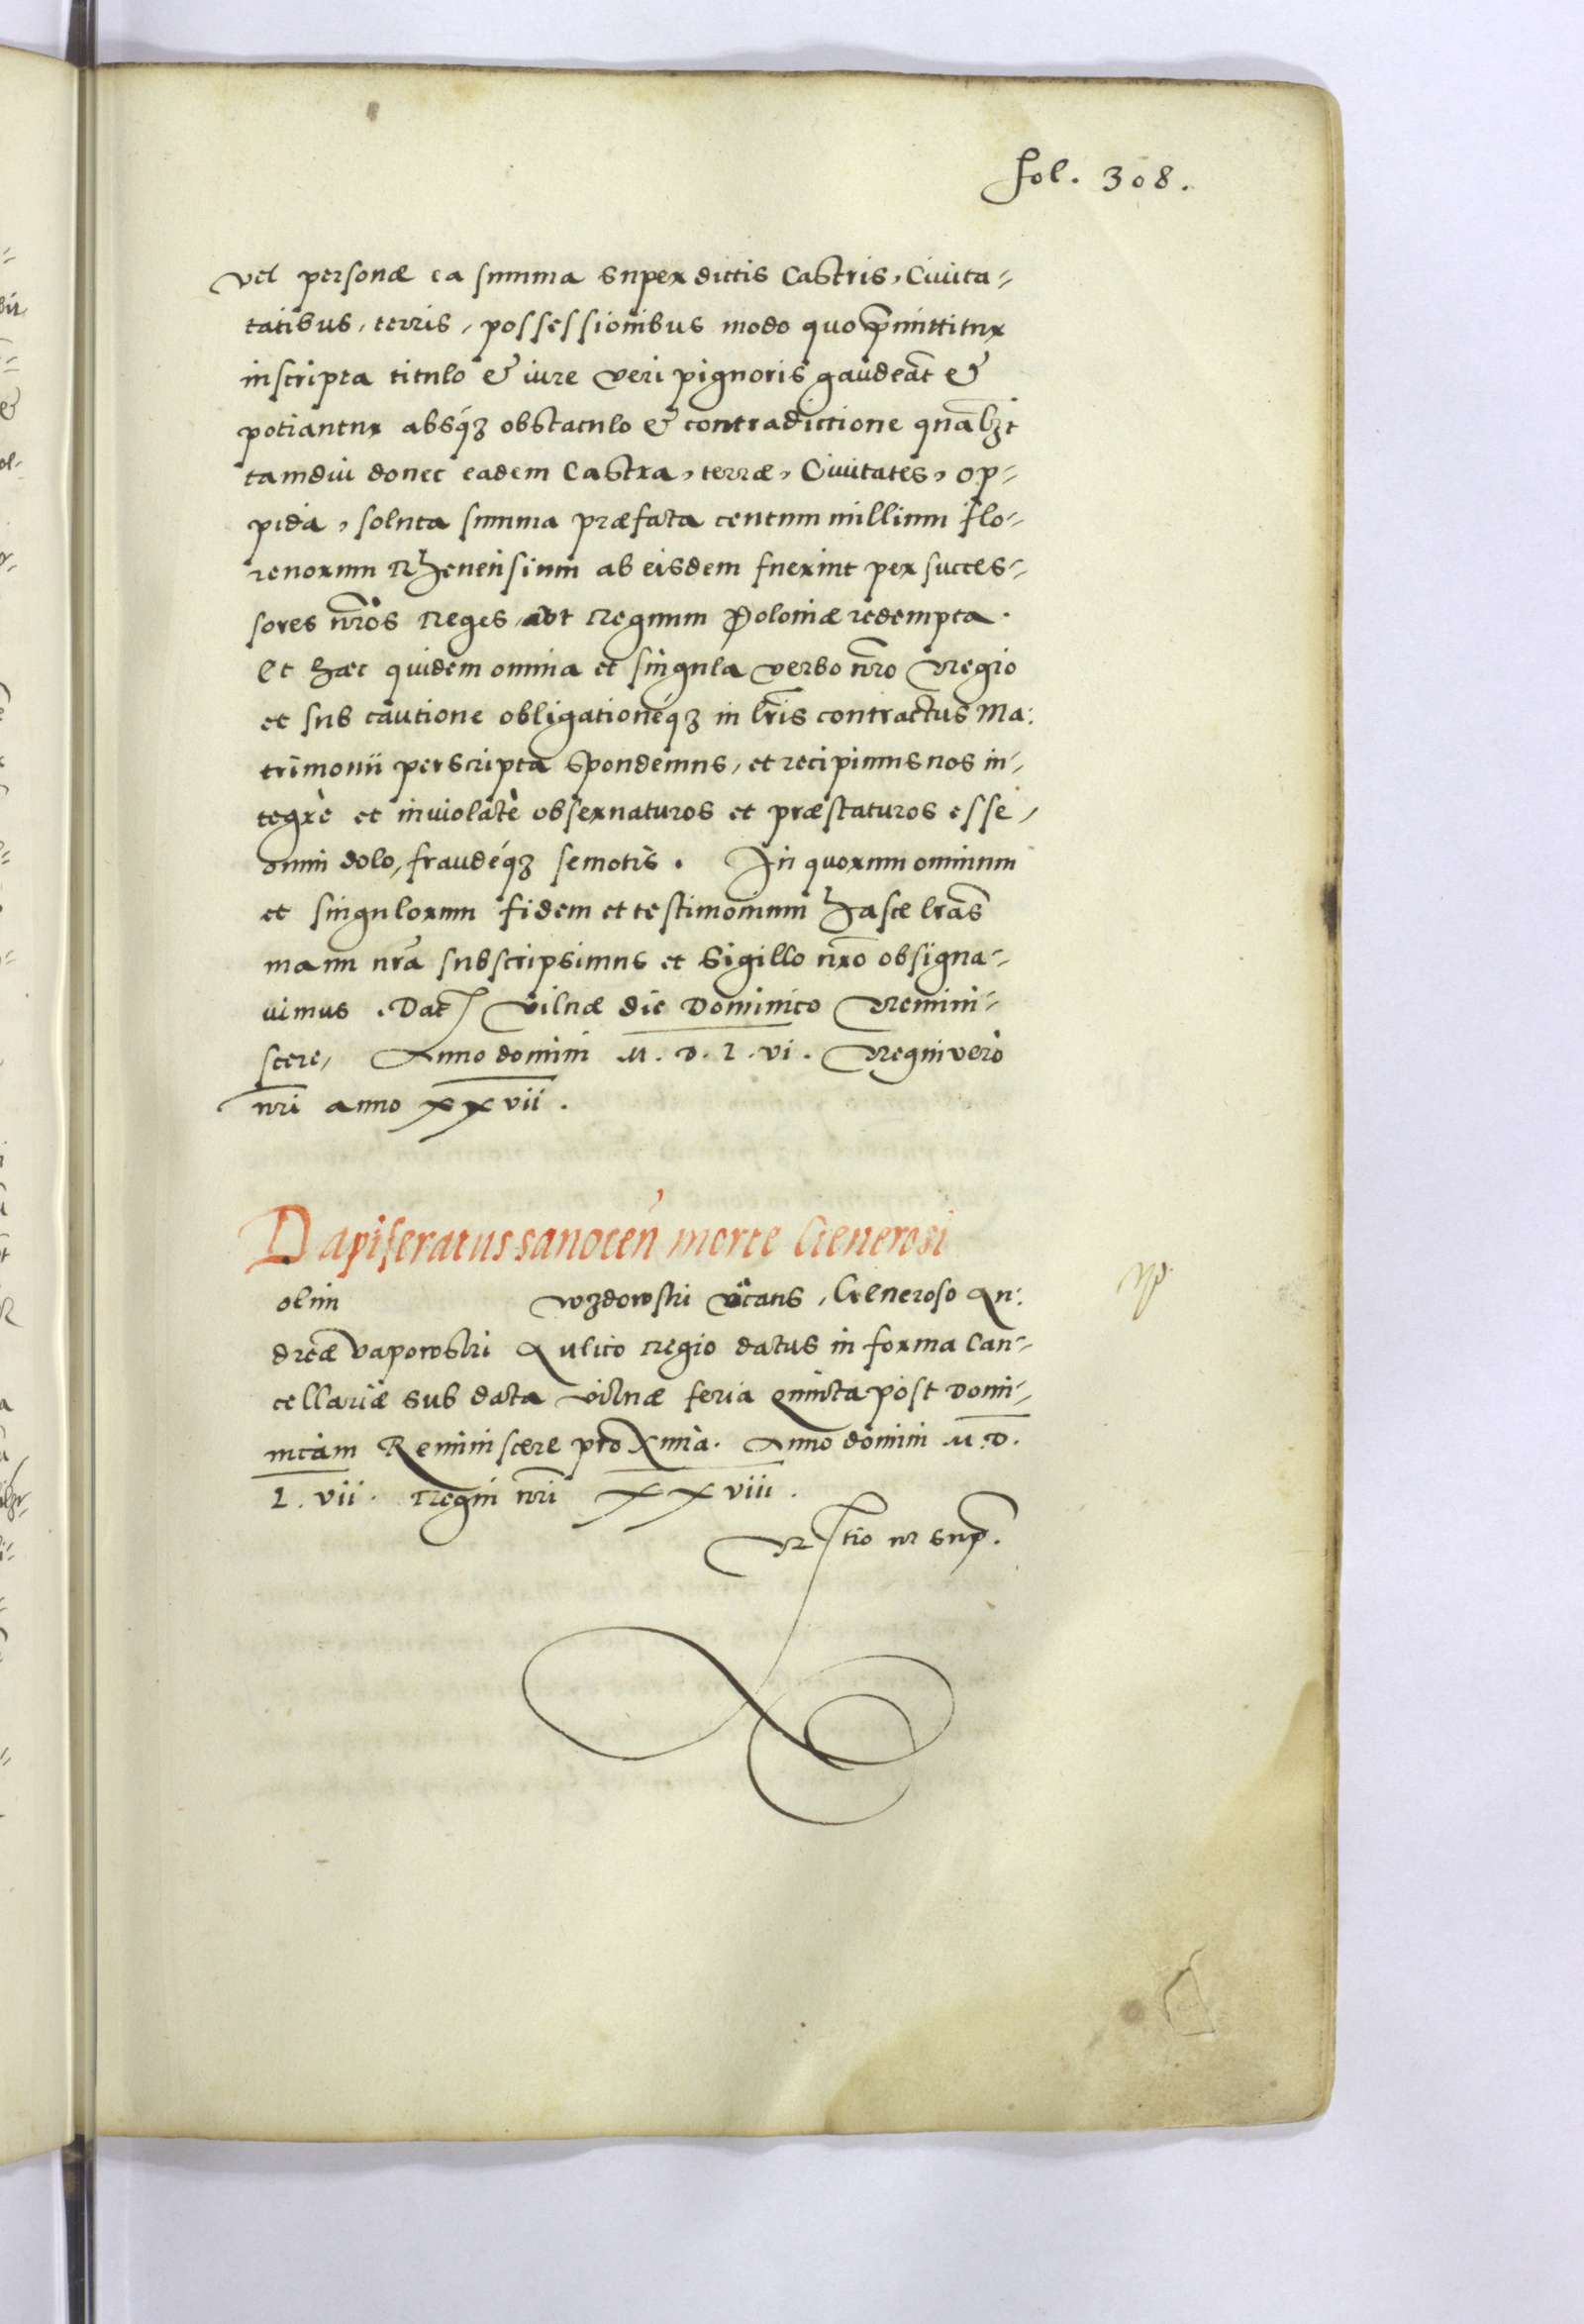 fol. 308.
vel personæ ea summa super dictis Castris, Civita-
tatibus, terris, possessionibus modo quo p̄mittitur
inscripta titulo & iure veri pignoris gaudeāt &
potiantur absq́ꝫ obstaculo & contradictione qualꝫt
tamdiu donec eadem Castra, terræ, Civitates, op-
pida, soluta summa præfata centum millium flo-
renorum Rhenensium ab eisdem fuerint per succes-
sores nr̄os Reges aut Regnum Poloniæ redempta.
Et hæc quidem omnia et singula verbo nr̄o Regio
et sub cautione obligationéqꝫ in lr̄is contractus Ma:
trimonii perscripta spondemus, et recipimus nos in-
tegrè et inviolatè observaturos et præstaturos esse,
omni dolo, fraudéqꝫ semotis. In quorum omnium
et singulorum fidem et testimonium hasce lr̄as
manu nr̄a subscripsimus et Sigillo nr̄o obsigna-
vimus. Dat Vilnæ die Dominico Remini-
scere, Anno domini M. D. L. vi. Regni verò
nr̄i anno xxvii.
Dapiferatus sanocen̄ morte Generosi
olim Wzdowski vacans, Generoso An:
dreæ Vaporoski Aulico Regio datus in forma Can-
cellariæ sub data Vilnæ feria quinta post Domi-
nicam Reminiscere proxima. Anno domini M. D.
L. vii. Regni nr̄i xxviii.
R tio ut sup.